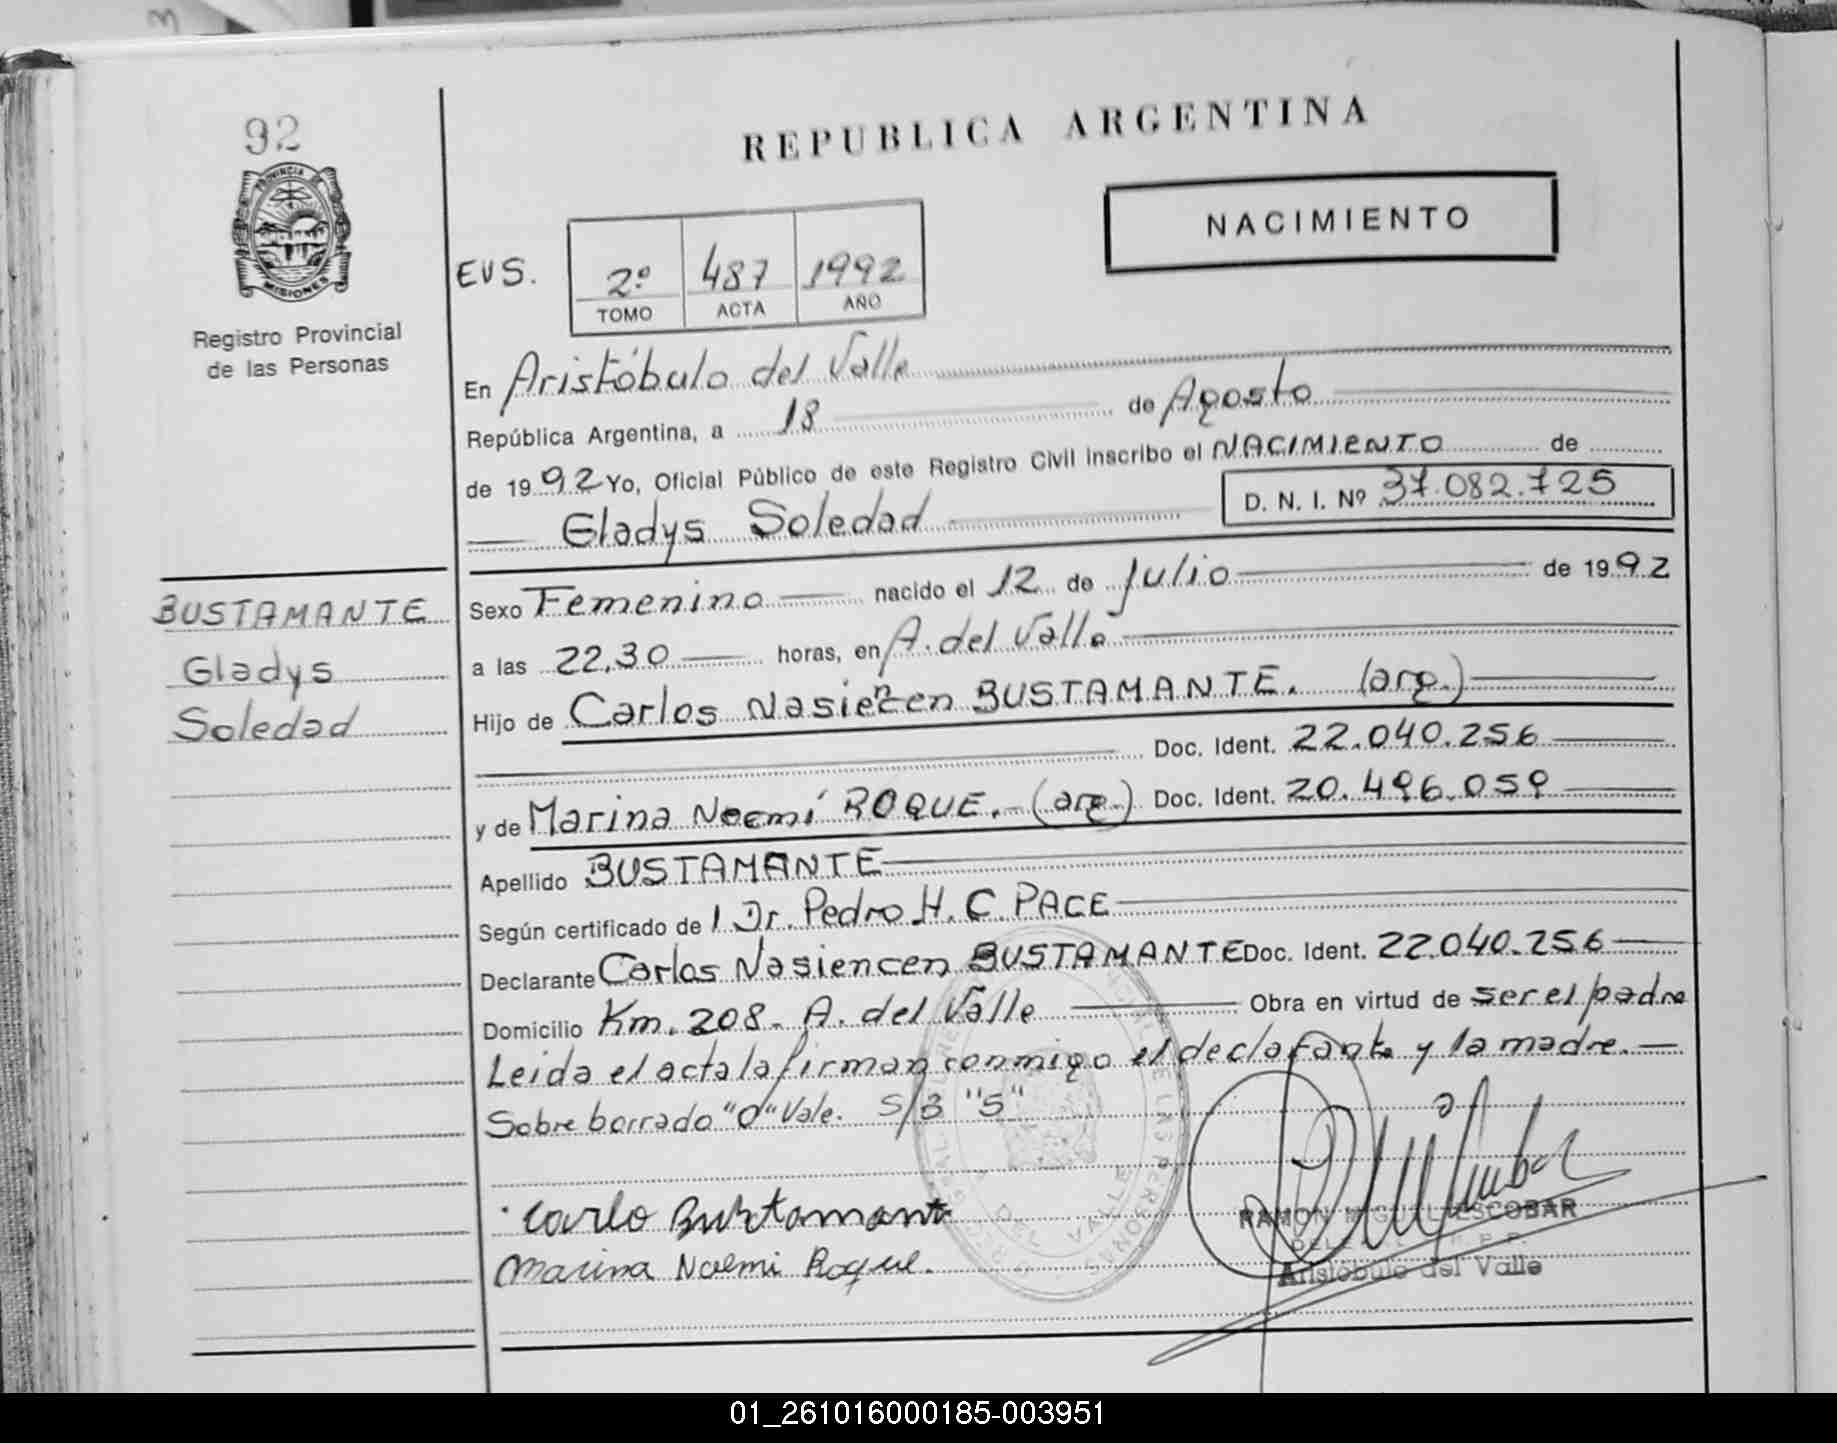 92
PROVINCIA DE
MISIONES
Registro Provincial
de las Personas
REPUBLICA ARGENTINA
NACIMIENTO
EVS.
2º 487 1992
TOMO ACTA AÑO
En Aristóbulo del Valle
República Argentina, a 18 de Agosto
de 1992 Yo, Oficial Público de este Registro Civil inscribo el NACIMIENTO de
Gladys Soledad D. N. I. Nº 37.082.725
BUSTAMANTE
Gladys
Soledad
Sexo Femenino nacido el 12 de Julio de 1992
a las 22,30 horas, en A. del Valle
Hijo de Carlos Nasiencen BUSTAMANTE. (arg.)
Doc. Ident. 22.040.256
y de Marina Noemí ROQUE. (arg.) Doc. Ident. 20.496.059
Apellido BUSTAMANTE
Según certificado de l Dr. Pedro H. C. PACE
Declarante Carlos Nasiencen BUSTAMANTE Doc. Ident. 22.040.256
Domicilio Km. 208- A. del Valle Obra en virtud de ser el padre
Leida el acta la firman conmigo el declarante y la madre.—
Sobre borrado "O" Vale. S/B "S"
Carlo Bustamante
Marina Noemi Roque.
RAMON MIGUEL ESCOBAR
Aristóbulo del Valle
01_261016000185-003951